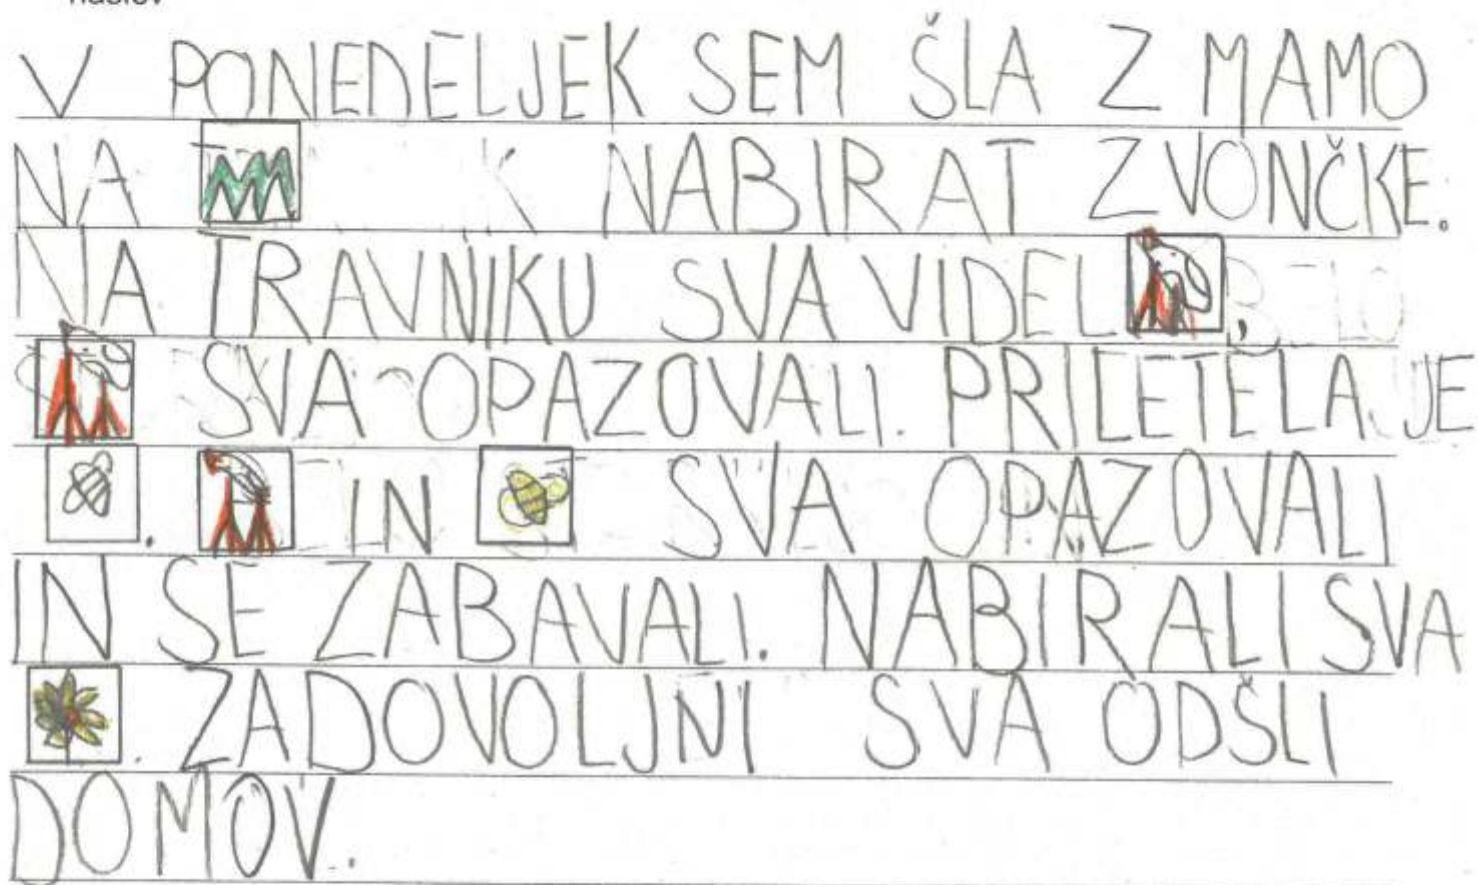 naslov
V PONEDELJEK SEM ŠLA Z MAMO
NA NABIRAT ZVONČKE.
NA TRAVNIKU SVA VIDEL ,
SVA OPAZOVALI. PRILETELA JE
. IN SVA OPAZOVALI
IN SE ZABAVALI. NABIRALI SVA
. ZADOVOLJNI SVA ODŠLI
DOMOV.